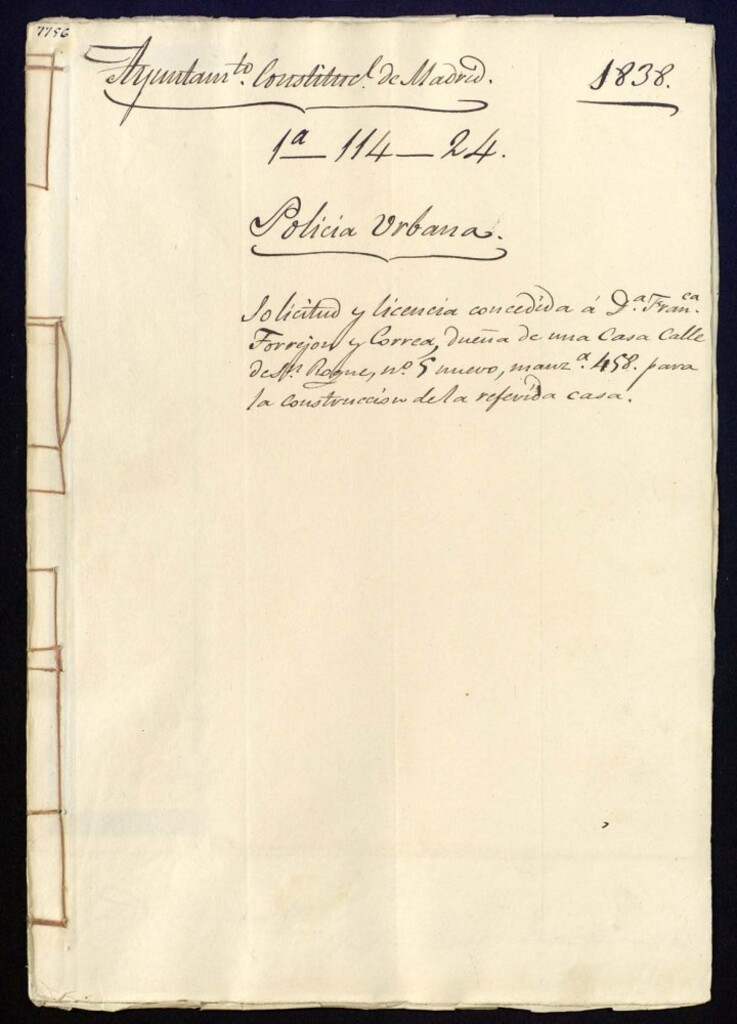 7756
Ayuntam.to Constituc.l de Madrid. 1838.
1a — 114 — 24.
Policia Urbana.
Solicitud y licencia concedida á D.a Fran.ca
Torrejon y Correa, dueña de una Casa Calle
de S.n Roque, nº. 5 nuevo, manz.a 458. para
la construccion de la referida casa.